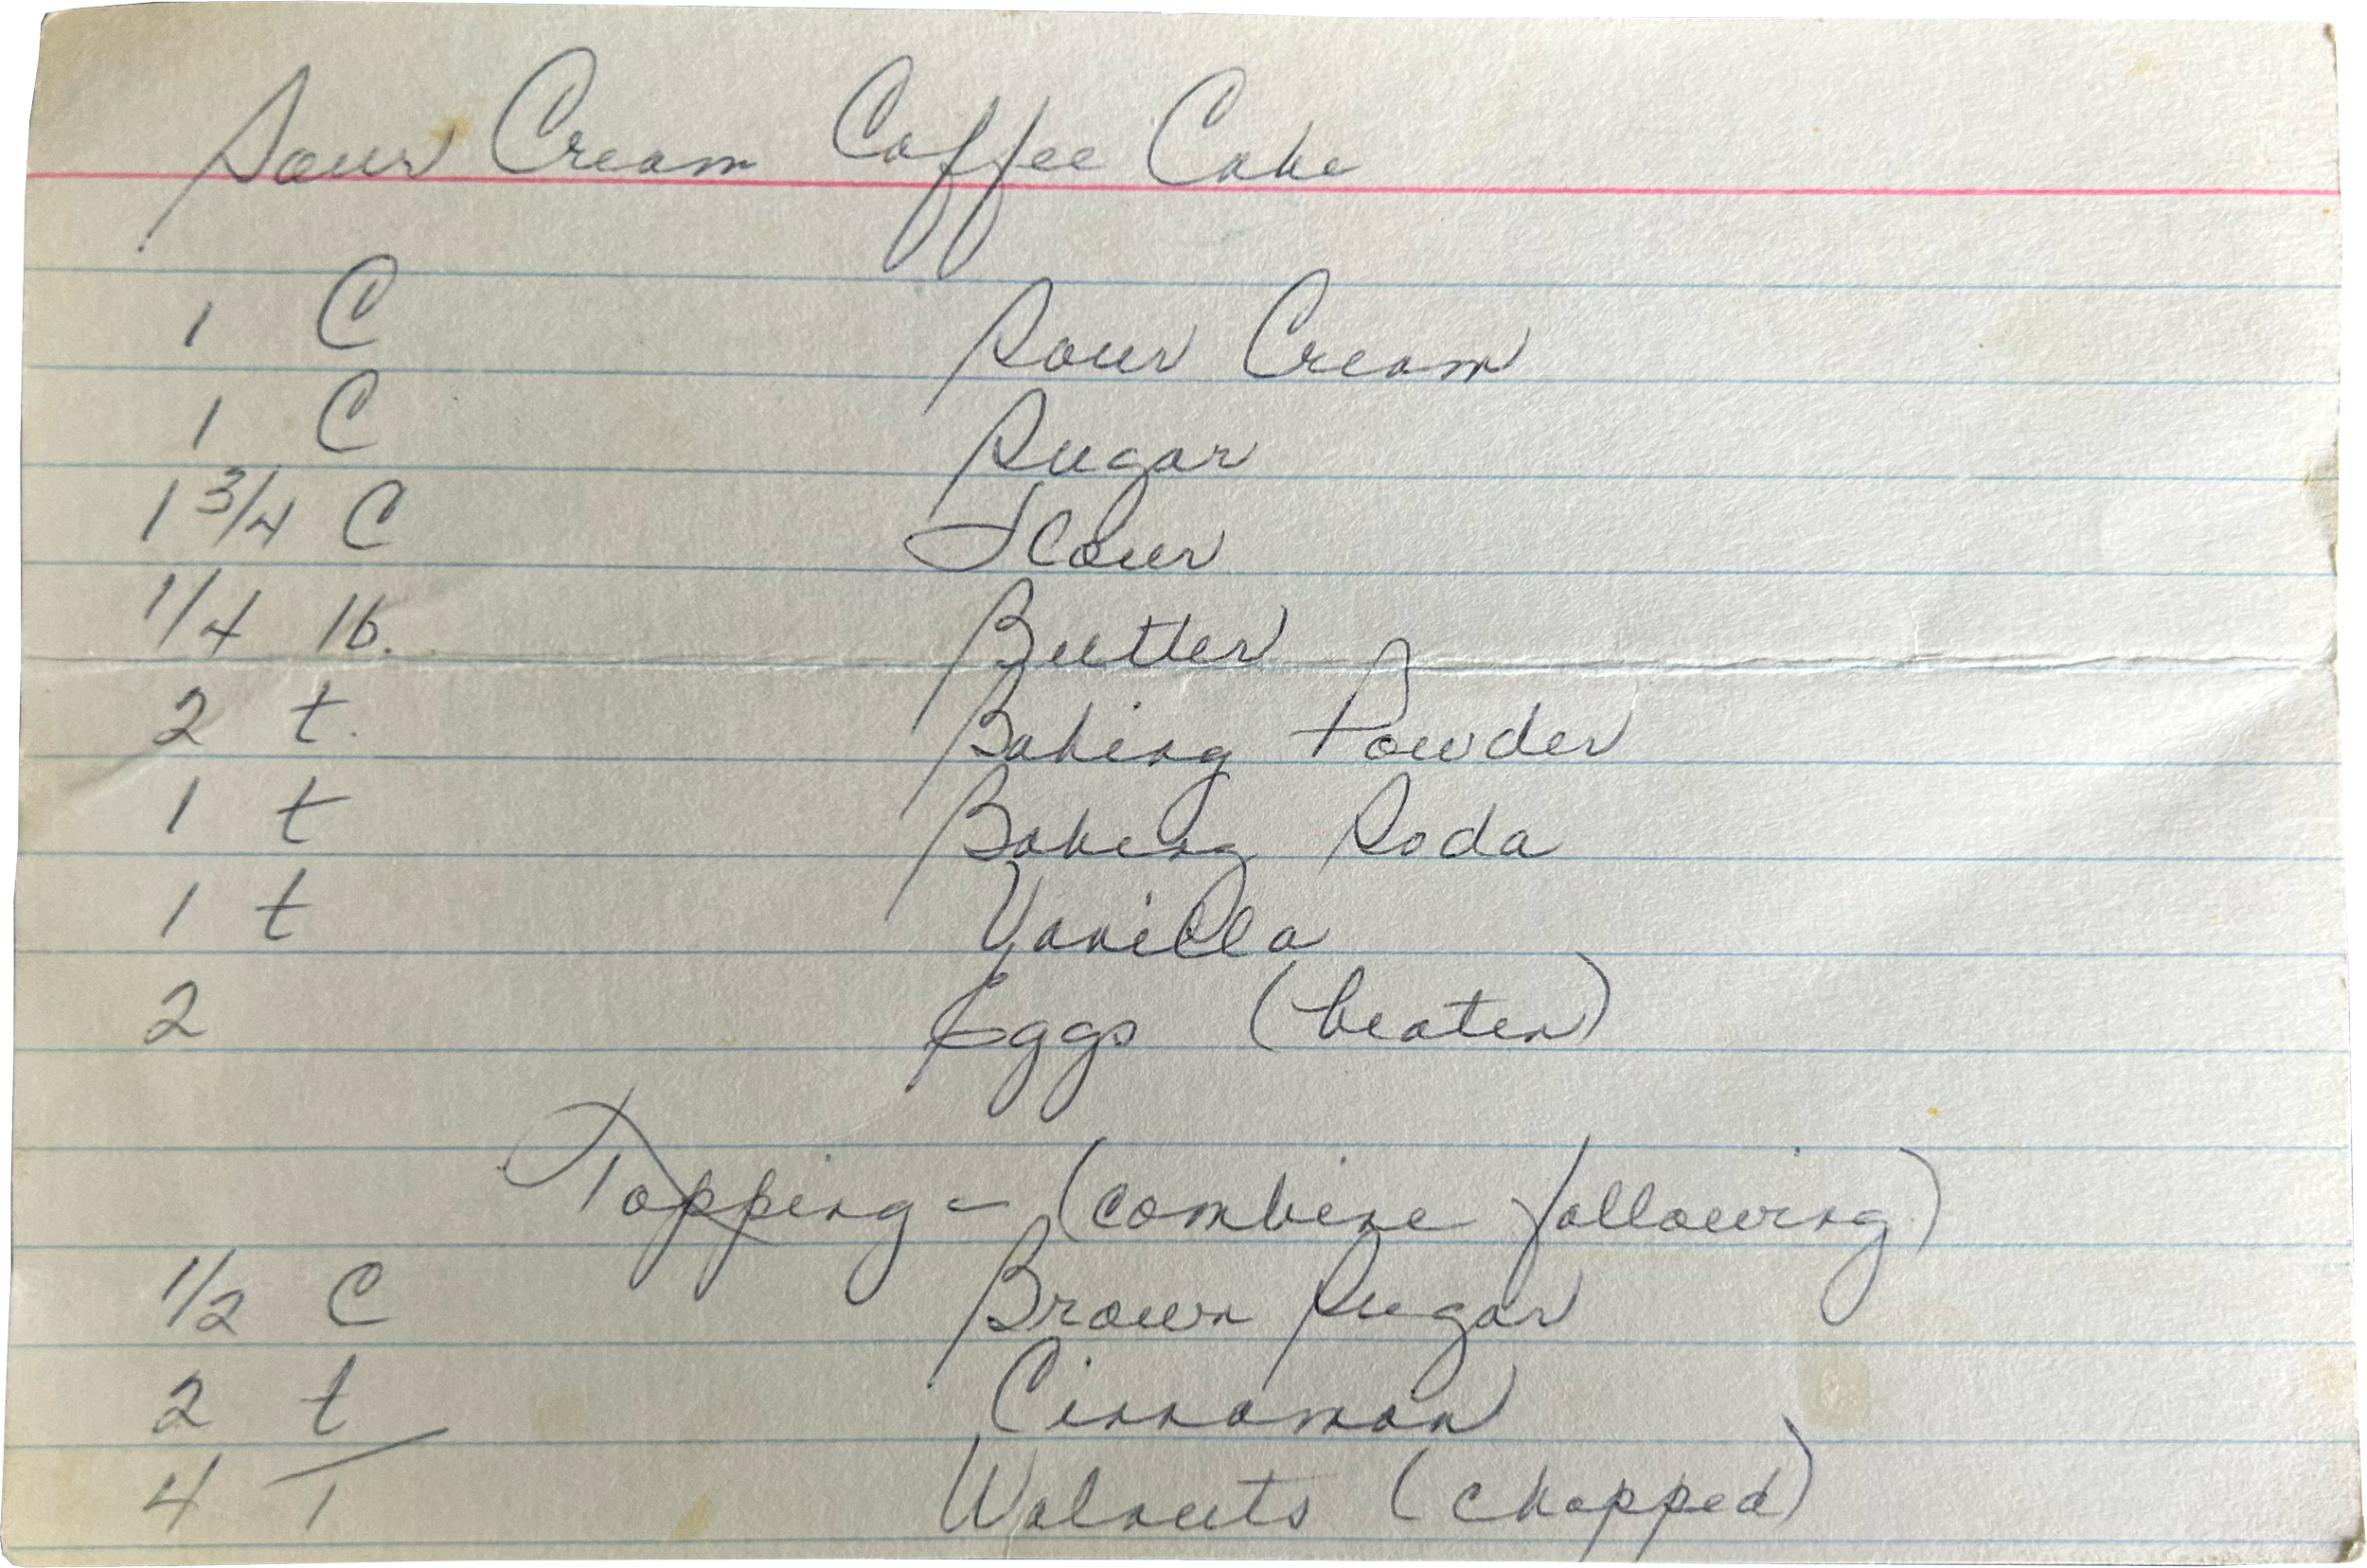 Sour Cream Coffee Cake
1 C Sour Cream
1 C Sugar
1 3/4 C Flour
1/4 lb. Butter
2 t. Baking Powder
1 t Baking Soda
1 t Vanilla
2 Eggs (beaten)
Topping - (combine following)
1/2 C Brown Sugar
2 t Cinnamon
4 T Walnuts (chopped)